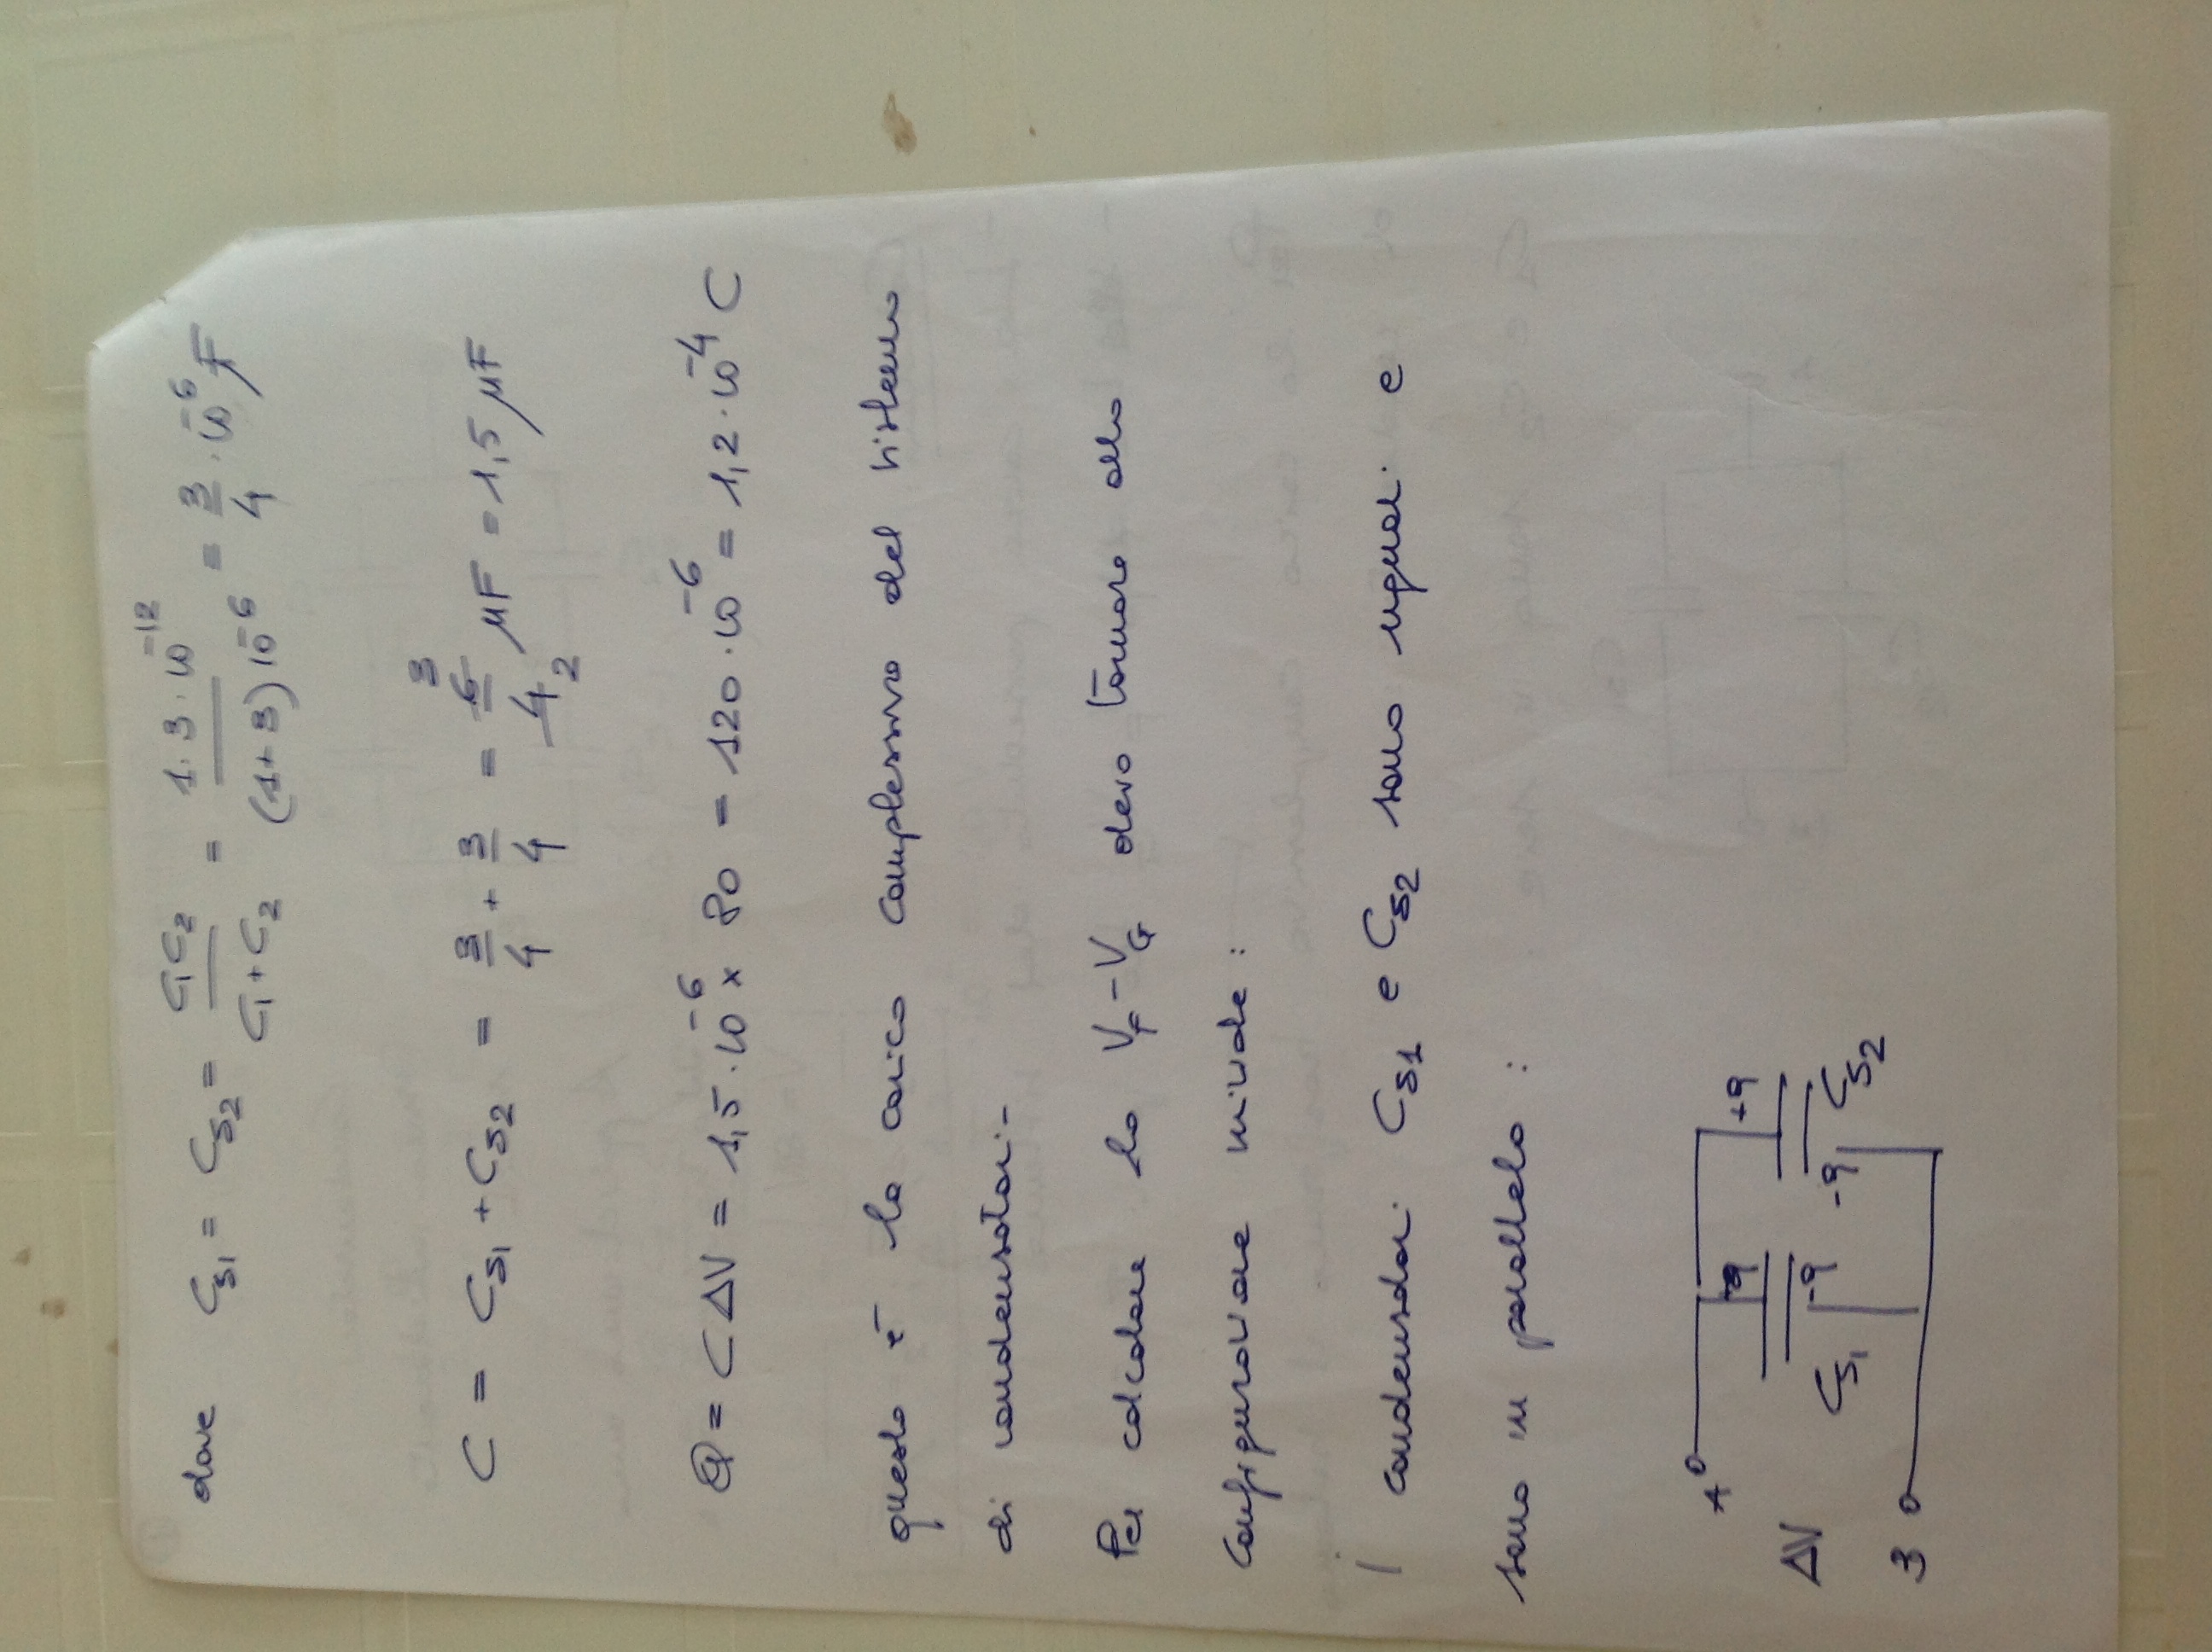 dove C_{S1} = C_{S2} = \frac{C_1 C_2}{C_1 + C_2} = \frac{1 \cdot 3 \cdot 10^{-12}}{(1+3) 10^{-6}} = \frac{3}{4} \cdot 10^{-6} F
C = C_{S1} + C_{S2} = \frac{3}{4} + \frac{3}{4} = \frac{6}{4} \frac{3}{2} μF = 1,5 μF
Q = C ΔV = 1,5 · 10^{-6} x 80 = 120 · 10^{-6} = 1,2 · 10^{-4} C
questa è la carica complessiva del sistema
di condensatori.-
Per calcolare la V_F - V_G devo tornare alla
configurazione iniziale :
I condensatori C_{S1} e C_{S2} sono uguali e
sono in parallelo :
A +q +q
ΔV -q -q
C_{S1} C_{S2}
B